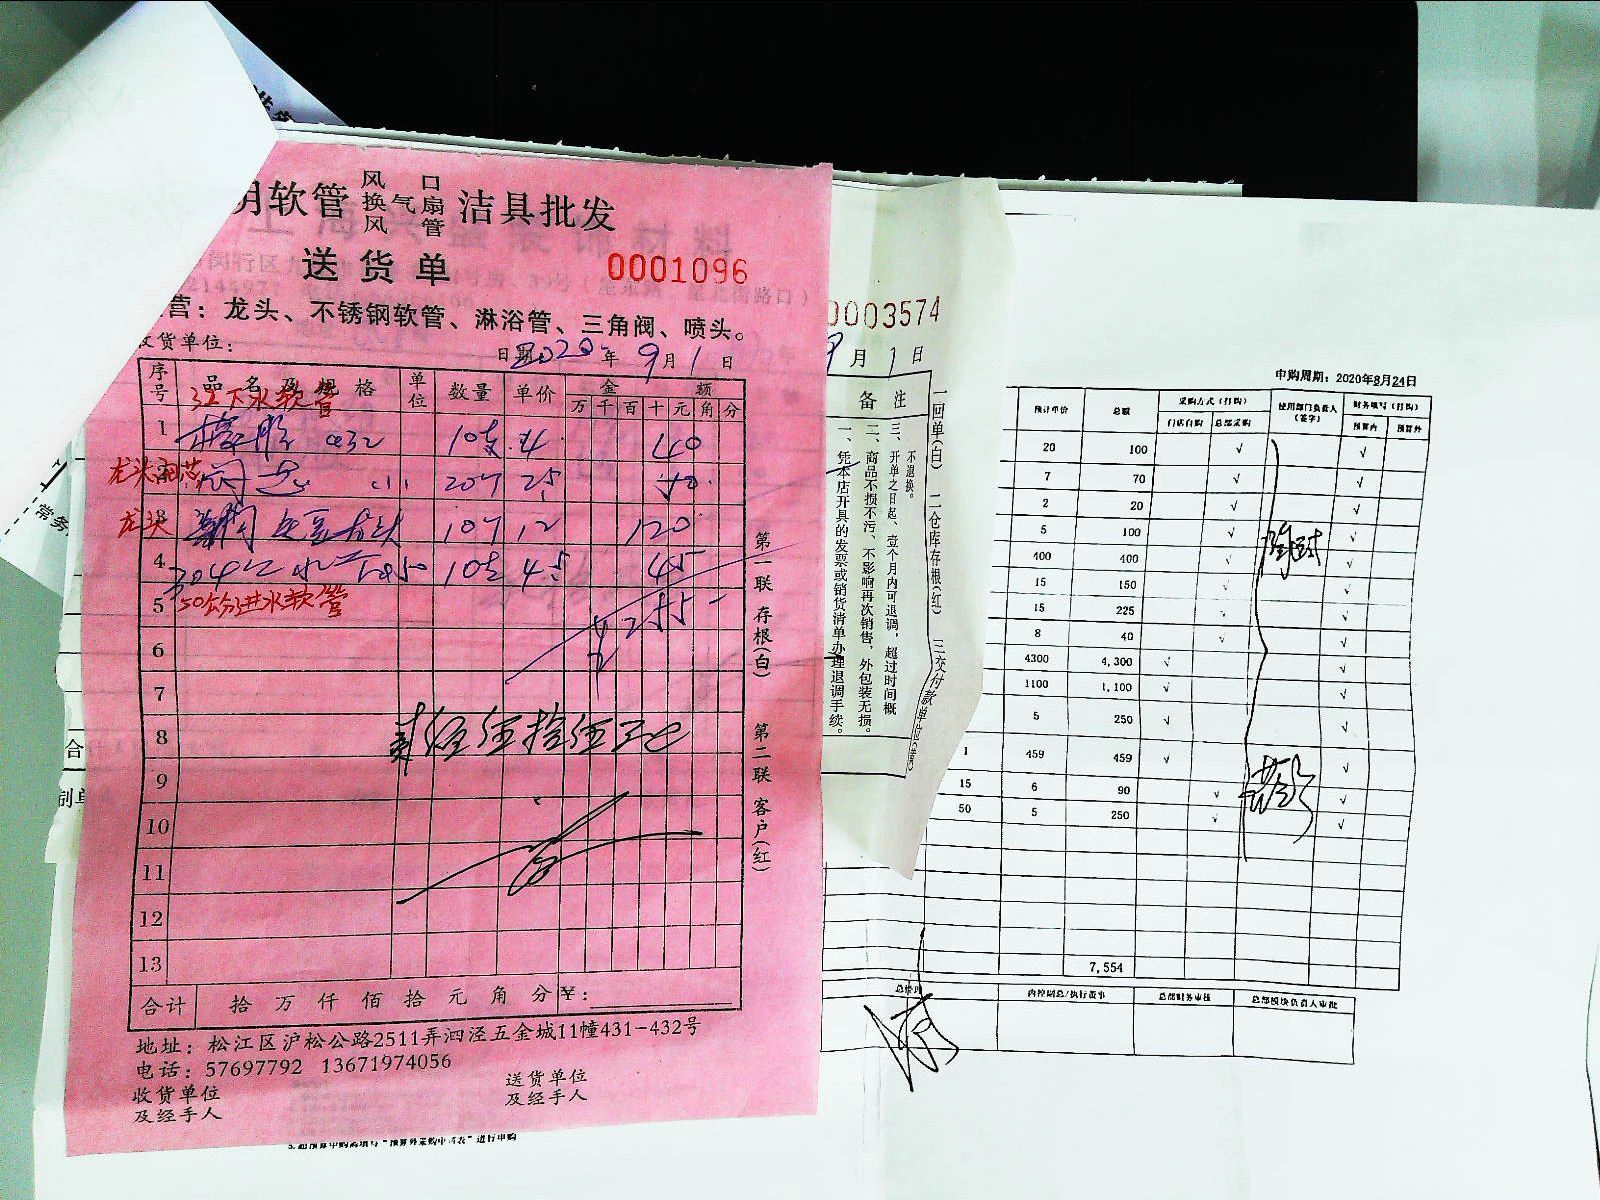 明软管 风口 换气扇 风管 洁具批发
送货单 0001096
营：龙头、不锈钢软管、淋浴管、三角阀、喷头。
收货单位：
日期2020年9月1日
序号 品名及规格 单位 数量 单价 金额
万 千 百 十 元 角 分
下水软管
1 10支 4 40
龙头阀芯
20个 25
龙头
3 龙头 10个 12 120
4 304 50 10支 45 45
5 50公分进水软管
255
6
7
8 伍拾伍元
9
10
11
12
13
合计 拾 万 仟 佰 拾 元 角 分 ¥：
地址：松江区沪松公路2511弄泗泾五金城11幢431-432号
电话：57697792 13671974056
收货单位及经手人
送货单位及经手人
第一联 存根(白) 第二联 客户(红)
0003574
9月1日
备注
一、凭本店开具的发票或销货清单办理退调手续。
二、商品不损不污、不影响再次销售，外包装无损。
三、开单之日起，壹个月内可退调，超过时间概不退换。
一回单(白) 二仓库存根(红) 三交付款单位(黄)
申购周期：2020年8月24日
预计单价 总额 采购方式（打钩） 使用部门负责人（签字） 财务填写（打钩）
门店自购 总部采购 预算内 预算外
20 100 √ √
7 70 √ √
2 20 √ √
5 100 √ √
400 400 √ √
15 150 √ √
15 225 √ √
8 40 √ √
4300 4,300 √ √
1100 1,100 √ √
5 250 √ √
1 459 459 √ √
15 6 90 √ √
50 5 250 √ √
7,554
总经理 内控副总/执行董事 总部财务审核 总部模块负责人审批
5.超预算申购需填写"预算外采购申请表"进行申购
常务
合
制单